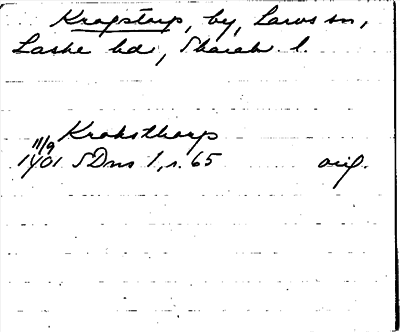 Kragstorp, by, Larvs sn,
Laske hd, Skarab. l.
Kraksthorp
11/9
1401 SDns 1, s. 65 orig.